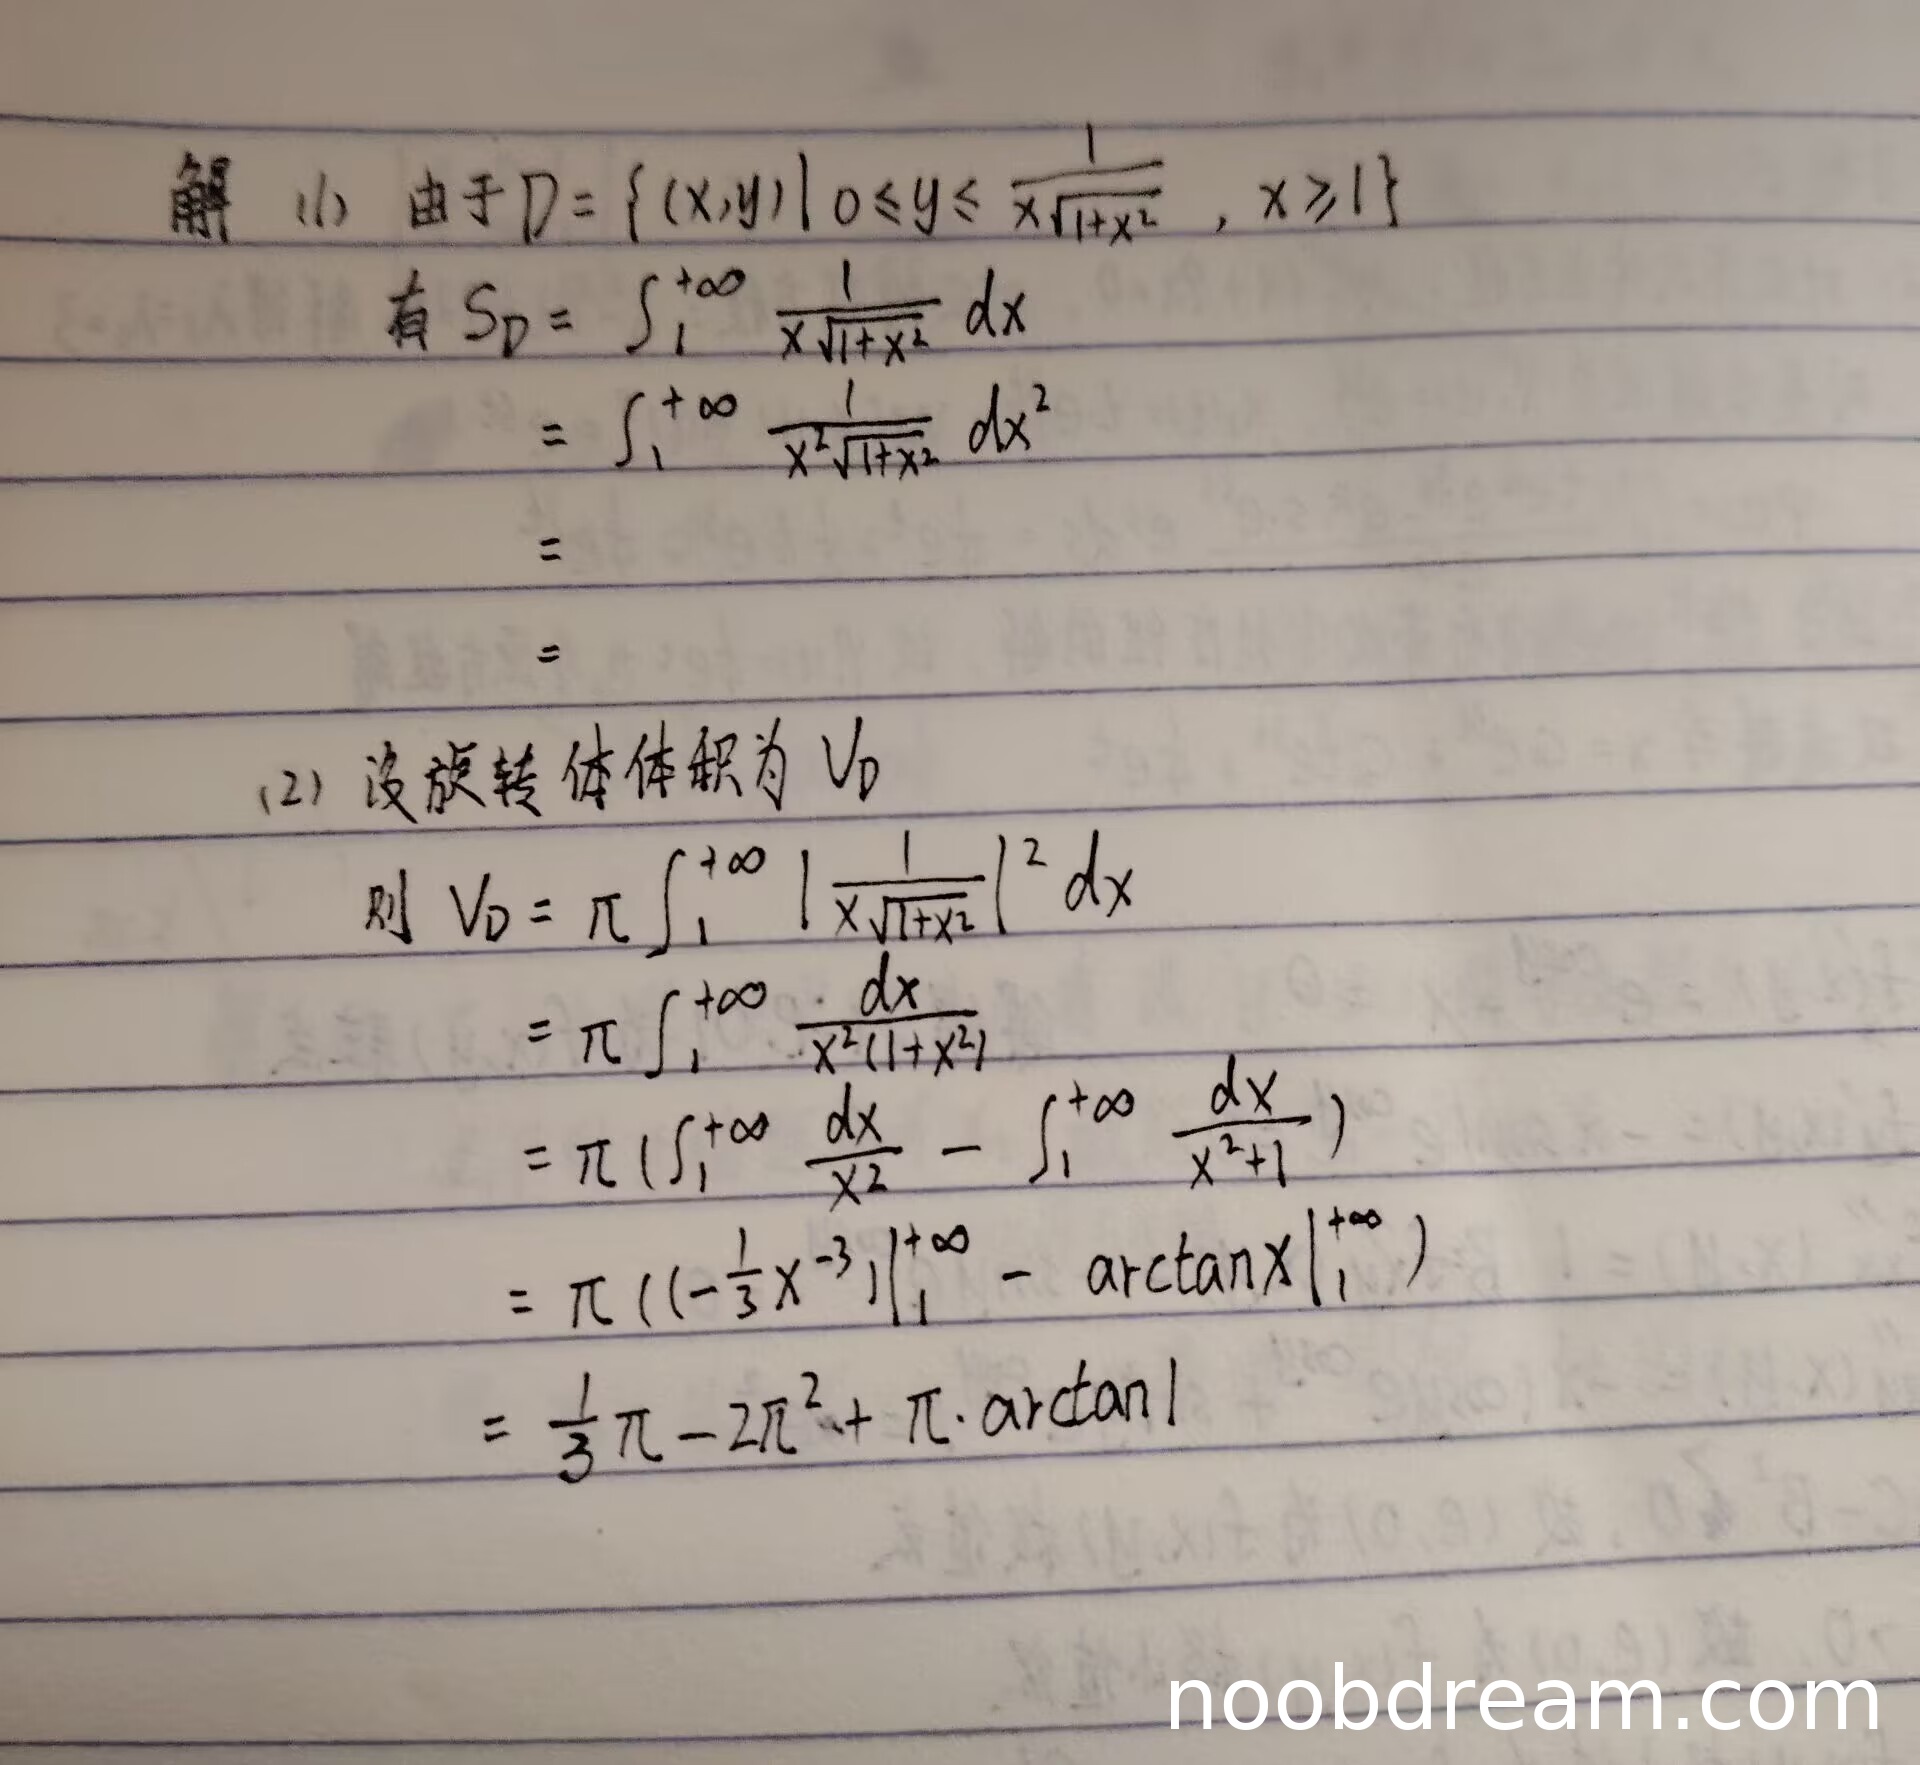 解 (1) 由于D={(x,y)|0≤y≤1/(x√(1+x²)), x≥1}
有 S_D = ∫₁^{+∞} 1/(x√(1+x²)) dx
= ∫₁^{+∞} 1/(x²√(1+x²)) dx²
=
=
(2) 设旋转体体积为 V_D
则 V_D = π∫₁^{+∞} |1/(x√(1+x²))|² dx
= π∫₁^{+∞} dx/(x²(1+x²))
= π(∫₁^{+∞} dx/x² - ∫₁^{+∞} dx/(x²+1))
= π((-1/3 x⁻³)|₁^{+∞} - arctanx|₁^{+∞})
= 1/3 π - 2π² + π·arctan1
noobdream.com